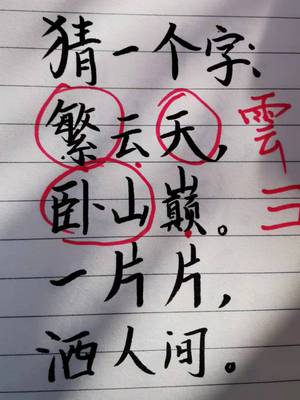 猜一个字:
繁云天,
卧山巅。
一片片,
洒人间。
雲
彐